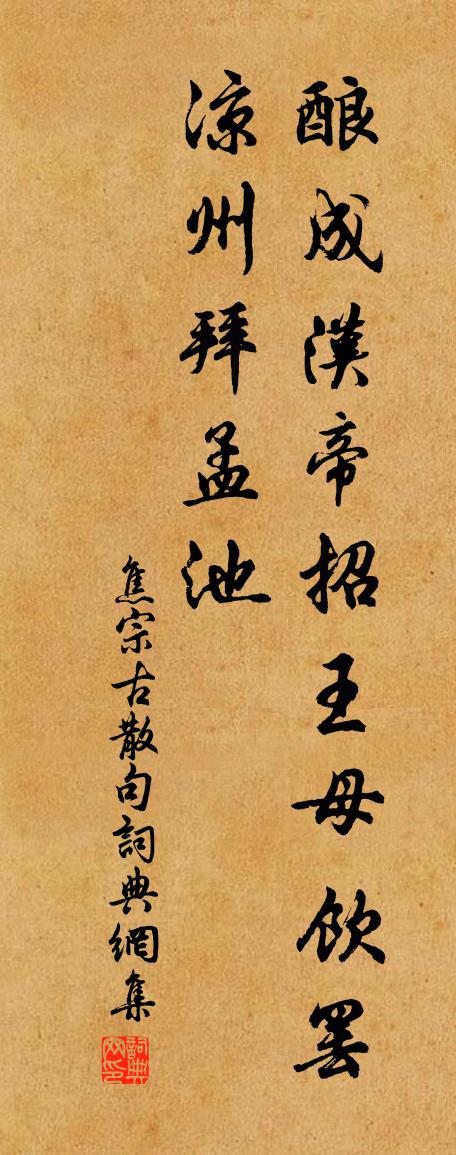 酿成漢帝招王母飲罢
凉州拜孟池
焦宗古散句詞典網集
詞典网印